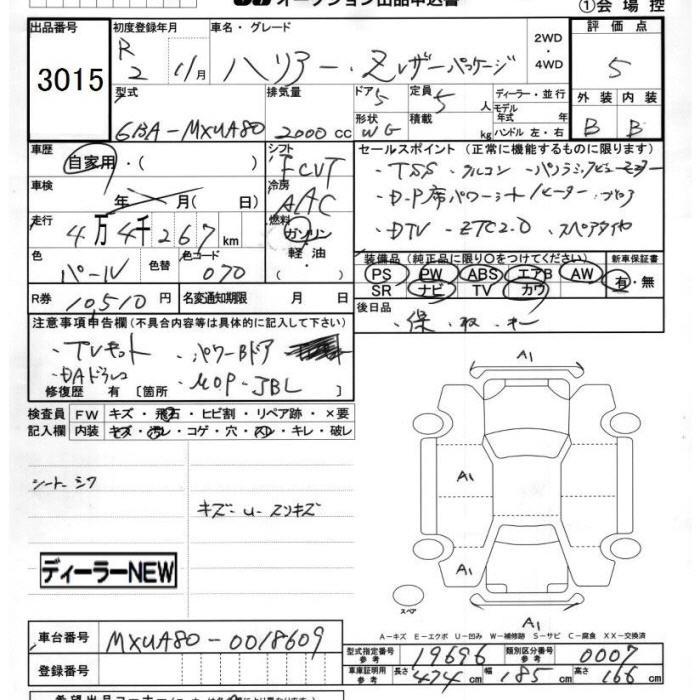 オークション出品申込書
①会場控
出品番号
3015
初度登録年月
R2 11月
車名・グレード
ハリアー・Zレザーパッケージ
2WD・4WD
評価点
5
型式
6BA-MXUA80
排気量
2000cc
ドア
5
定員
5人
形状
WG
積載
kg
ディーラー・並行
モデル年式 年式
ハンドル 左・右
外装 内装
B B
車歴
自家用・( )
シフト
FCVT
車検
年 月( 日)
冷房
AAC
走行
4万4千267km
燃料
ガソリン
軽油
・( )
色
パール
色替
色コード
070
R券
10,510円
名変通知期限 月 日
セールスポイント(正常に機能するものに限ります)
・TSS ・クルコン ・パノラミックビューモニター
・D-P席パワーシート/ヒーター・ブロア
・DTV ・ETC2.0 ・スペアタイヤ
装備品(純正品に限り○をつけてください)
PS PW ABS エアB AW
SR ナビ TV カワ
新車保証書
有・無
後日品
・保・取・キー
注意事項申告欄(不具合内容等は具体的に記入して下さい)
・TVキット ・パワーBドア
・DAドラレコ ・MOP-JBL
修復歴 有[箇所
検査員記入欄
FW キズ・飛石・ヒビ割・リペア跡・×要
内装 キズ・汚レ・コゲ・穴・スレ・キレ・破レ
シートシワ
キズ-U-スリキズ
ディーラーNEW
A1
A1
A1
A1
スペア
A-キズ E-エクボ U-凹み W-補修跡 S-サビ C-腐食 XX-交換済
車台番号
MXUA80-0018609
登録番号
型式指定番号 参考
19696
類別区分番号 参考
0007
車庫証明用 参考
長さ 474cm 幅 185cm 高さ 166cm